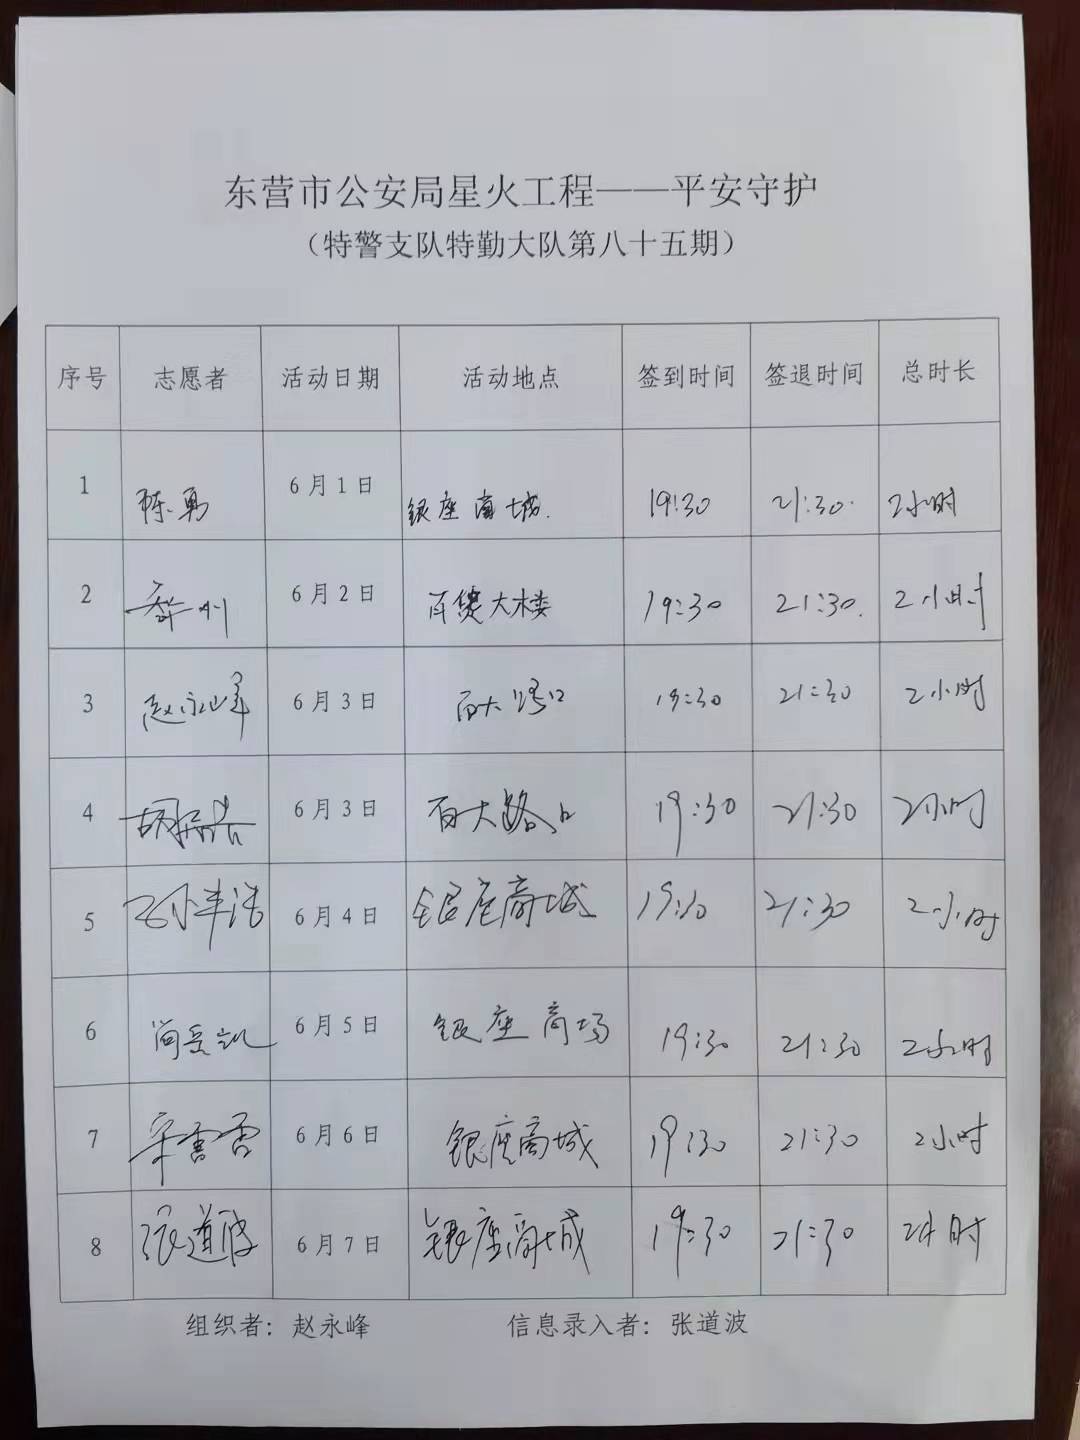 东营市公安局星火工程——平安守护
（特警支队特勤大队第八十五期）
序号 志愿者 活动日期 活动地点 签到时间 签退时间 总时长
1 陈勇 6月1日 银座商城. 19:30 21:30. 2小时
2 6月2日 百货大楼 19:30 21:30. 2小时
3 赵永峰 6月3日 百大路口 19:30 21:30 2小时
4 6月3日 百大路口 19:30 21:30 2小时
5 6月4日 银座商城 19:30 21:30 2小时
6 6月5日 银座商场 19:30 21:30 2小时
7 6月6日 银座商城 19:30 21:30 2小时
8 张道波 6月7日 银座商城 19:30 21:30 2小时
组织者：赵永峰 信息录入者：张道波